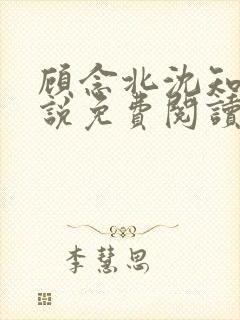 顾念北沈知
說免費閱讀
李慧思